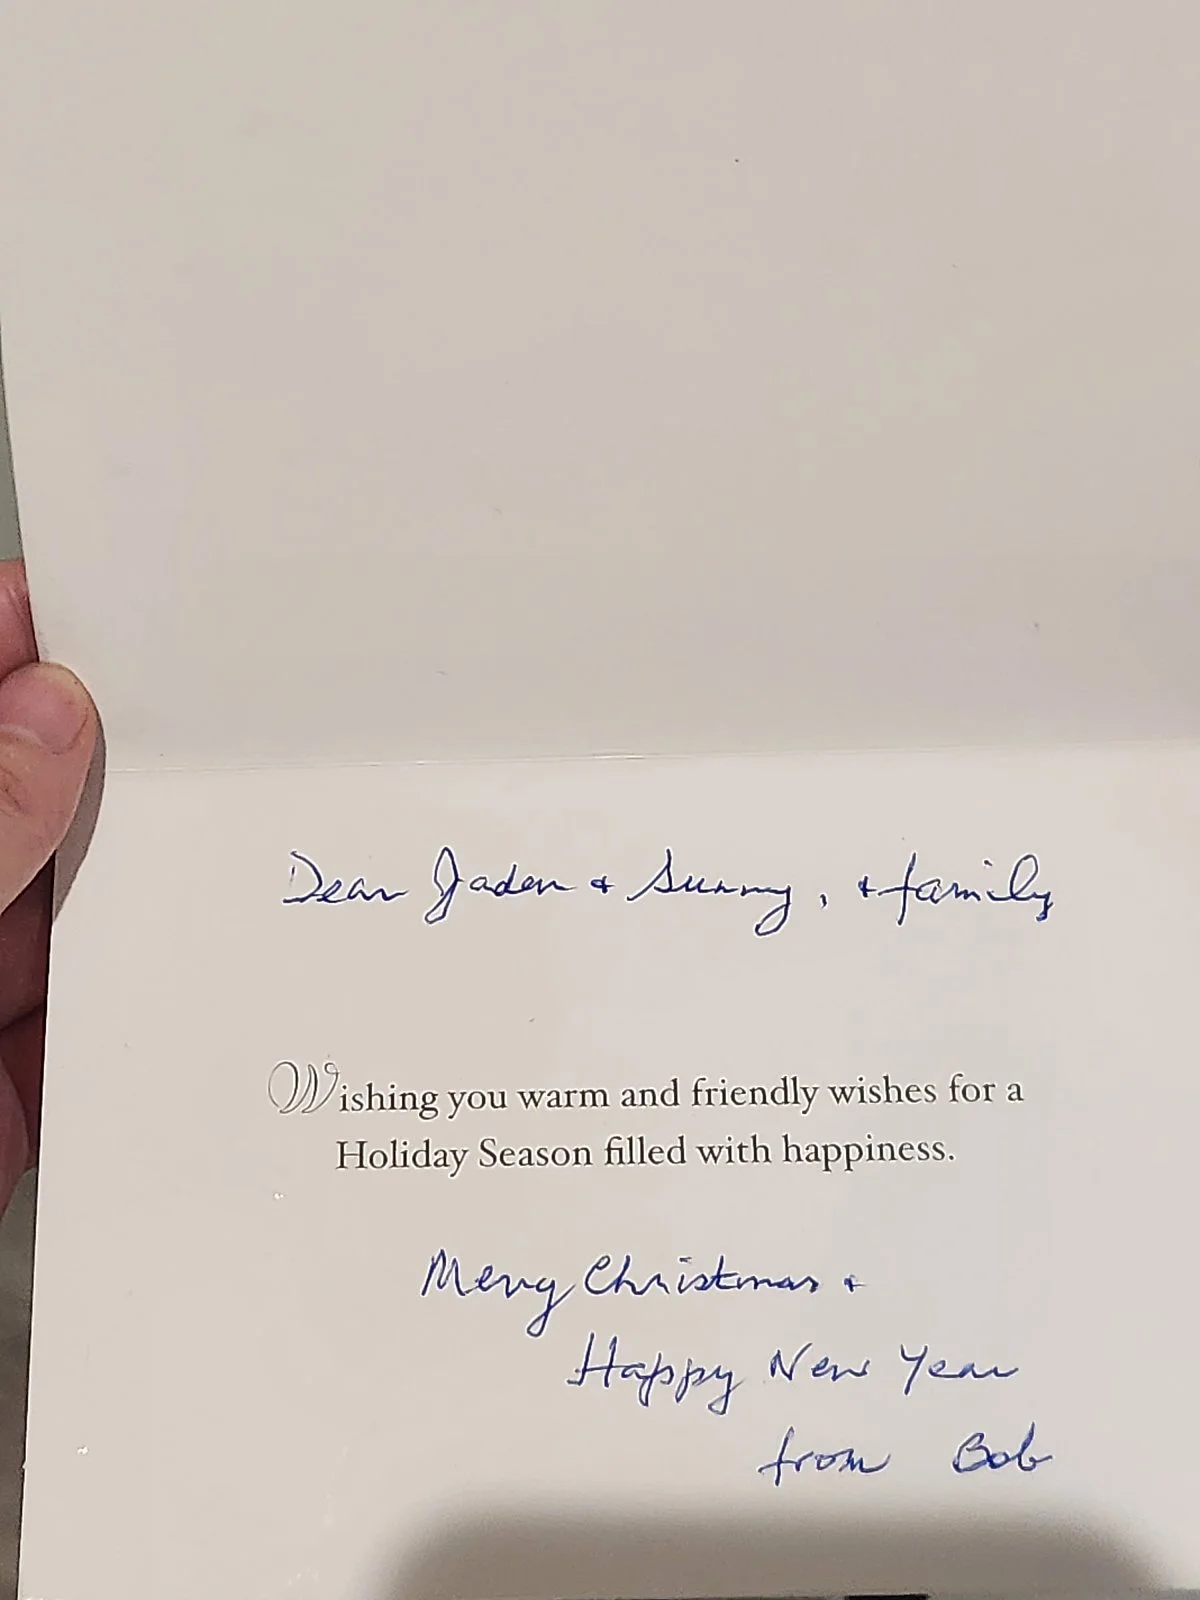 Dear Jaden & Sunny, & family
Wishing you warm and friendly wishes for a
Holiday Season filled with happiness.
Merry Christmas &
Happy New Year
from Bob